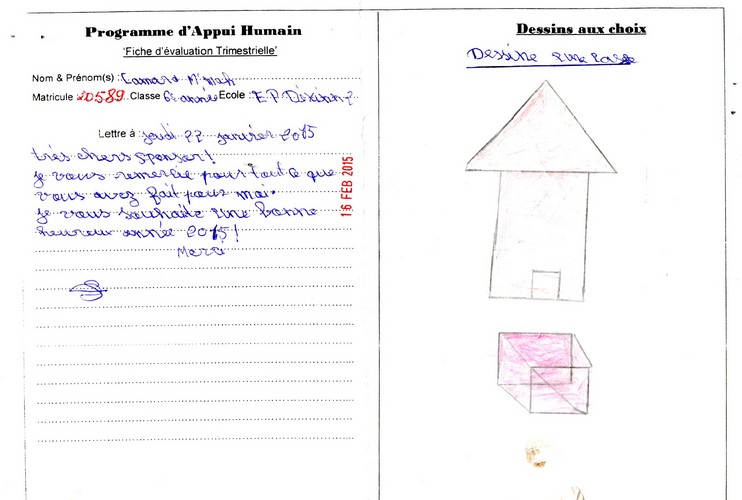 Programme d'Appui Humain
'Fiche d'évaluation Trimestrielle'
Nom & Prénom(s) : Camara M'mah
Matricule 20589 Classe 6e année Ecole : E P Dixinn 2
Lettre à : jeudi 22 janvier 2015
très chers sponser!
je vous remercie pour tout ce que
vous avez fait pour moi.
je vous souhaite une bonne
heureux année 2015!
Merci
16 FEB 2015
Dessins aux choix
Dessine une case